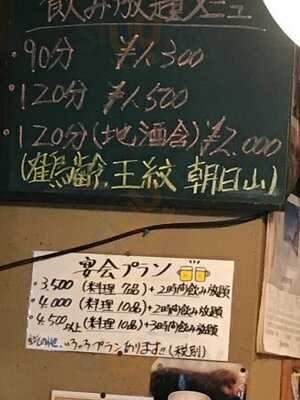 飲み放題メニュー
・90分 ¥1,300
・120分 ¥1,500
・120分(地酒含)¥2,000
(鶴齢、王紋 朝日山)
宴会プラン
・3,500 (料理 7品)+2時間飲み放題
・4,000 (料理 10品)+2時間飲み放題
・4,500以上 (料理 10品)+3時間飲み放題
いろいろプランあります!! (税別)